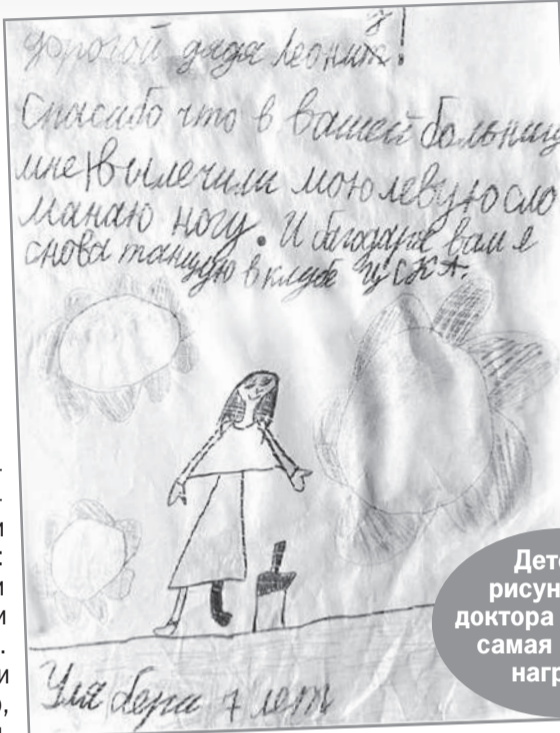 дорогой дядя Леонид!
Спасибо что в вашей больниц
мне вылечили мою левую сло
манаю ногу. И багодаря вам я
снова танцую в клубе ЦСКА.
Уля бера 7 лет
Дет
рисун
доктора
самая
нагр